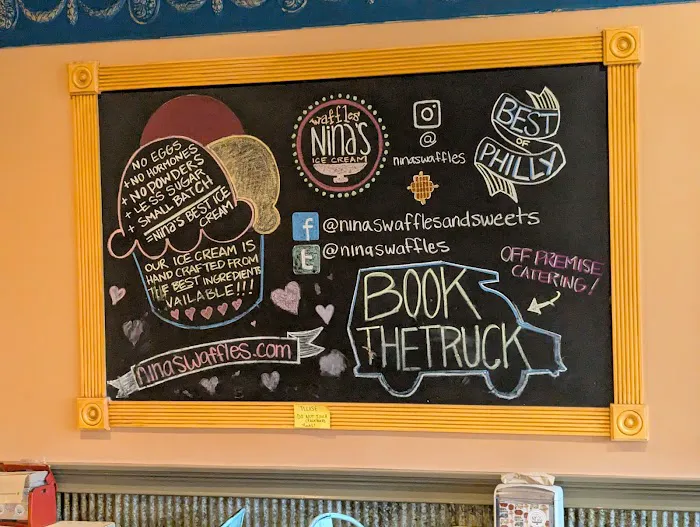 NO EGGS
+ NO HORMONES
+ NO POWDERS
+ LESS SUGAR
+ SMALL BATCH
= NiNa'S BEST ICE
CREAM
OUR ICE CREAM IS
HAND CRAFTED FROM
THE BEST INGREDIENTS
VAILABLE!!!
ninaswaffles.com
waffles
NiNa's
ICE CREAM
@
ninaswaffles
BEST
OF
PHILLY
f @ninaswafflesandsweets
t @ninaswaffles
OFF PREMISE
CATERING!
BOOK
THE TRUCK
PLEASE
DO NOT TOUCH